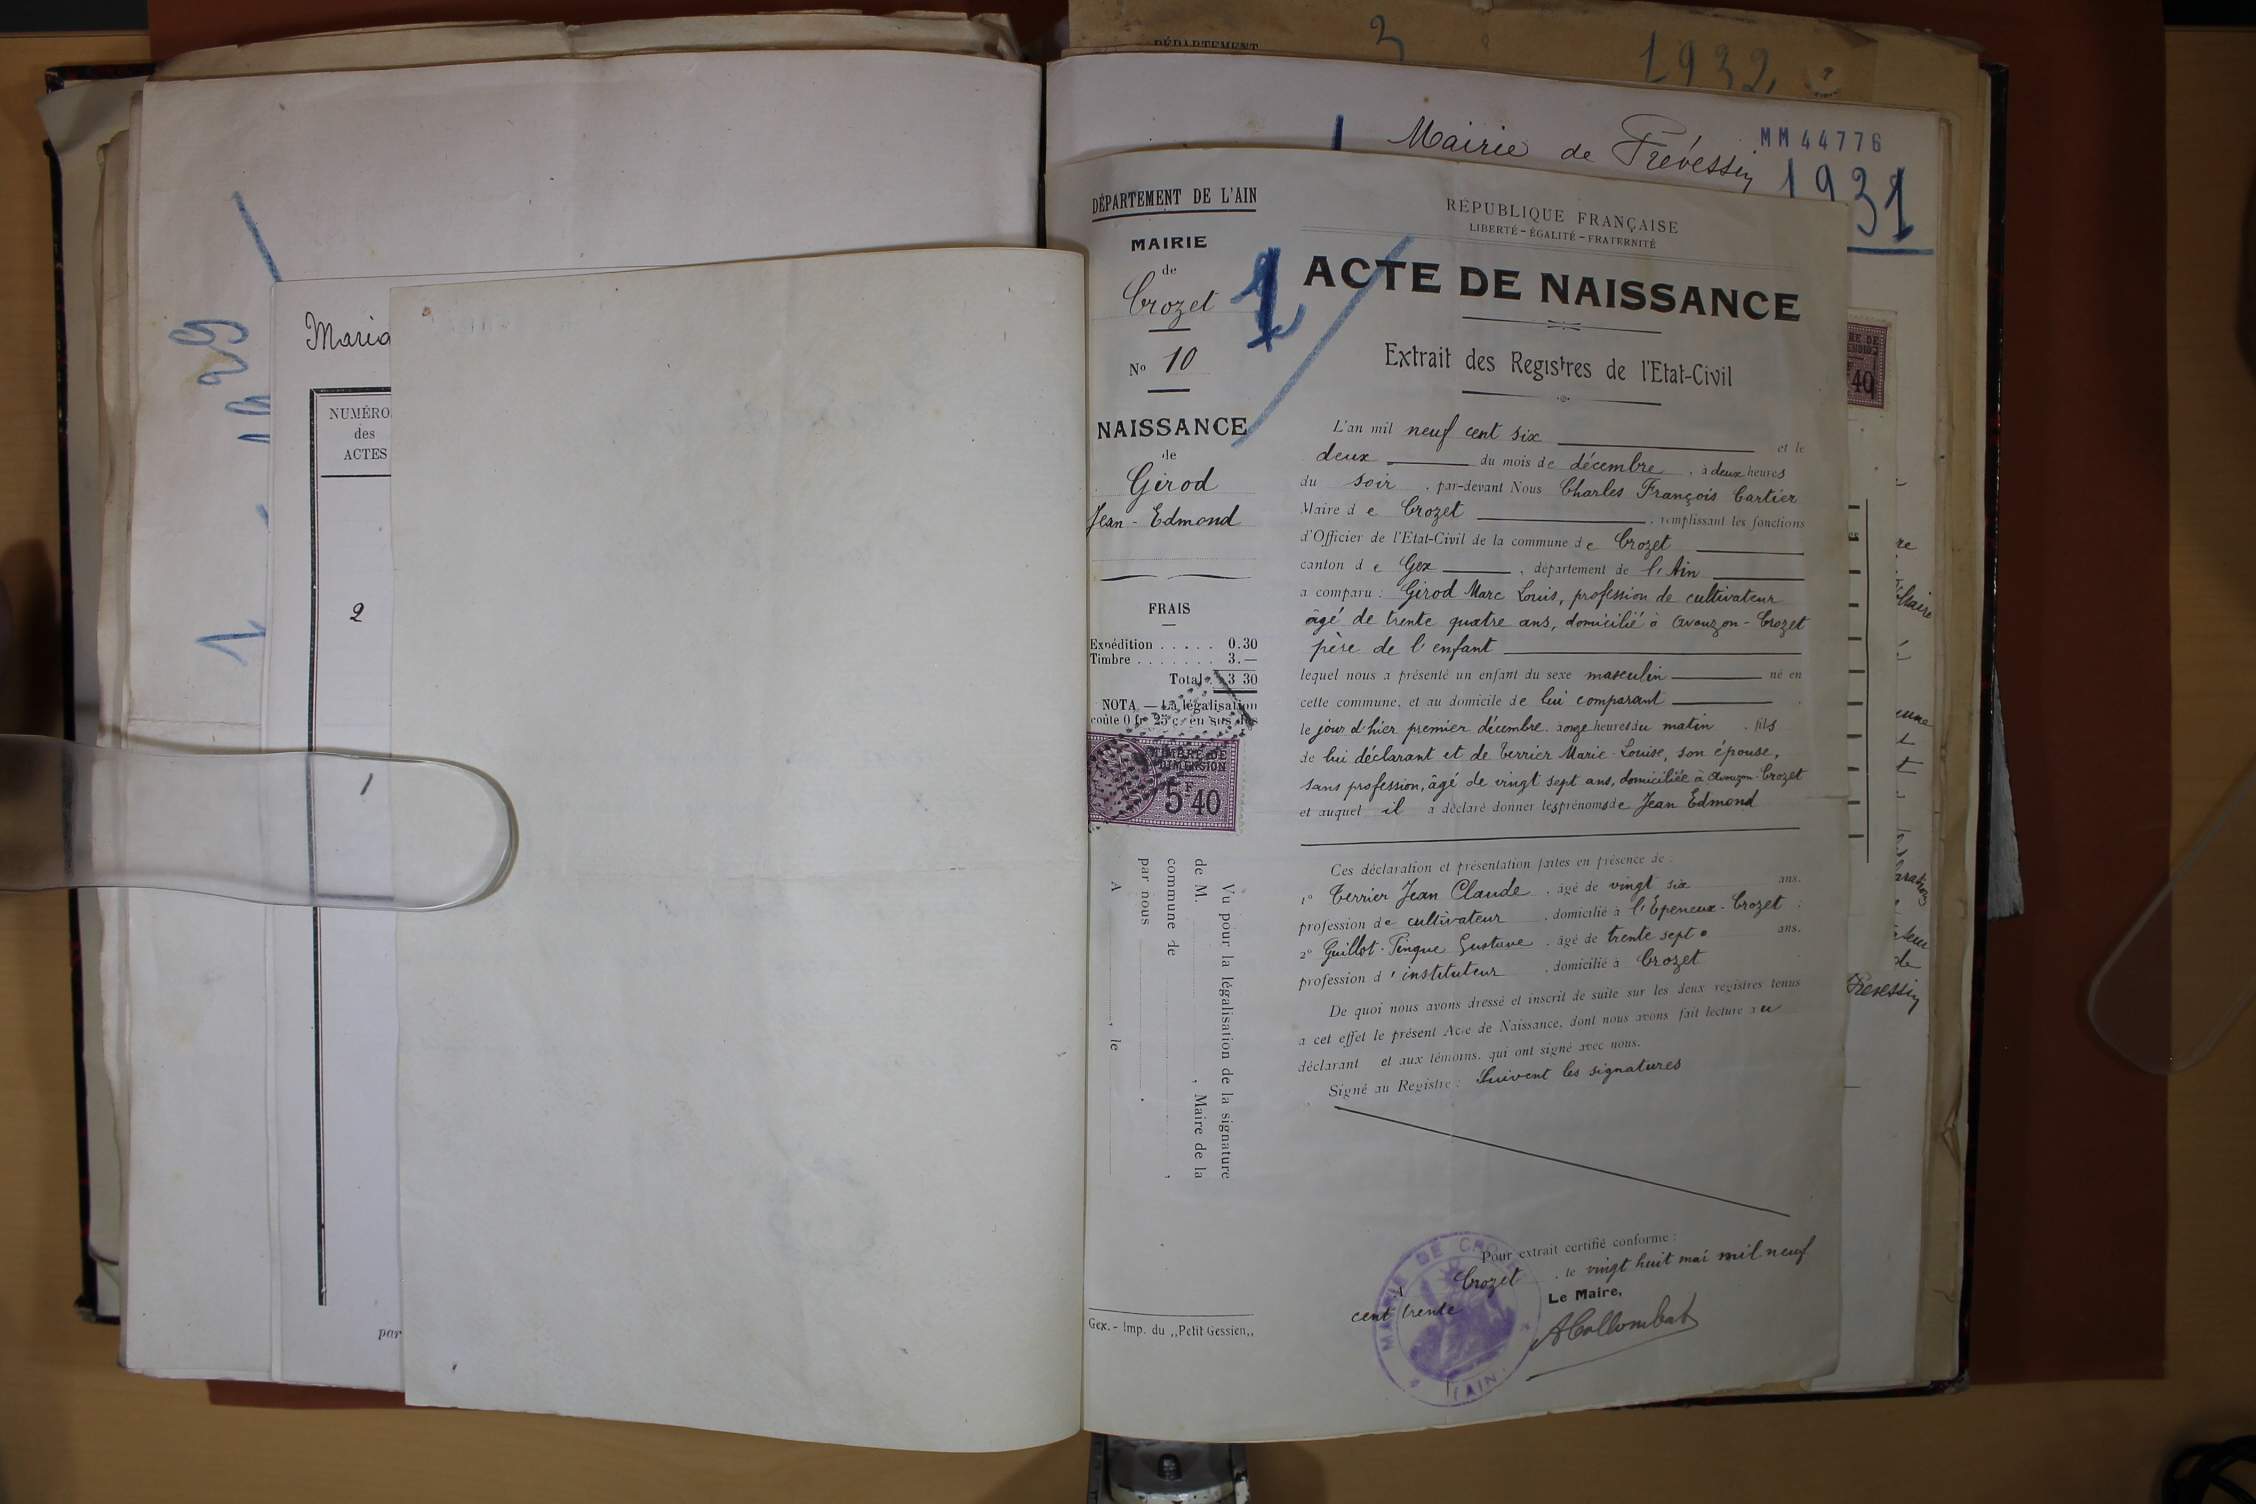 DÉPARTEMENT
3
1932
Mairie de Prévessin
MM 44776
1931
29
Maria
NUMÉRO
des
ACTES
2
1
par
DÉPARTEMENT DE L'AIN
MAIRIE
de
Crozet
No 10
NAISSANCE
de
Girod
Jean - Edmond
FRAIS
Expédition . . . . . 0.30
Timbre . . . . . . . 3.—
Total . . 3 30
NOTA. — La légalisation
coûte 0 fr. 25 c. en sus des
TIMBRE DE
DIMENSION
5F40
Vu pour la légalisation de la signature
de M. , Maire de la
commune de ,
par nous .
A , le
Gex. - Imp. du „Petit Gessien„
1
RÉPUBLIQUE FRANÇAISE
LIBERTÉ - ÉGALITÉ - FRATERNITÉ
ACTE DE NAISSANCE
Extrait des Registres de l'Etat-Civil
L'an mil neuf cent six et le
deux du mois de décembre , à deux heures
du soir , par-devant Nous Charles François Cartier
Maire d e Crozet , remplissant les fonctions
d'Officier de l'Etat-Civil de la commune d e Crozet
canton d e Gex , département de l'Ain
a comparu : Girod Marc Louis, profession de cultivateur
âgé de trente quatre ans, domicilié à Avouzon - Crozet
père de l'enfant
lequel nous a présenté un enfant du sexe masculin né en
cette commune, et au domicile de lui comparant
le jour d'hier premier décembre à onze heures du matin . fils
de lui déclarant et de Terrier Marie-Louise, son épouse,
sans profession, âgé de vingt sept ans, domiciliée à Avouzon-Crozet
et auquel il a déclaré donner les prénoms de Jean Edmond
Ces déclaration et présentation faites en présence de :
1° Terrier Jean Claude , âgé de vingt six ans.
profession de cultivateur , domicilié à l'Epeneux - Crozet :
2° Guillot-Pingue Gustave , âgé de trente sept ans.
profession d'instituteur , domicilié à Crozet
De quoi nous avons dressé et inscrit de suite sur les deux registres tenus
à cet effet le présent Acte de Naissance, dont nous avons fait lecture au
déclarant et aux témoins, qui ont signé avec nous.
Signé au Registre : Suivent les signatures
Pour extrait certifié conforme :
A Crozet , le vingt huit mai mil neuf
cent trente
Le Maire,
A Collombat
MAIRIE DE CROZET
(AIN)
40
Prévessin